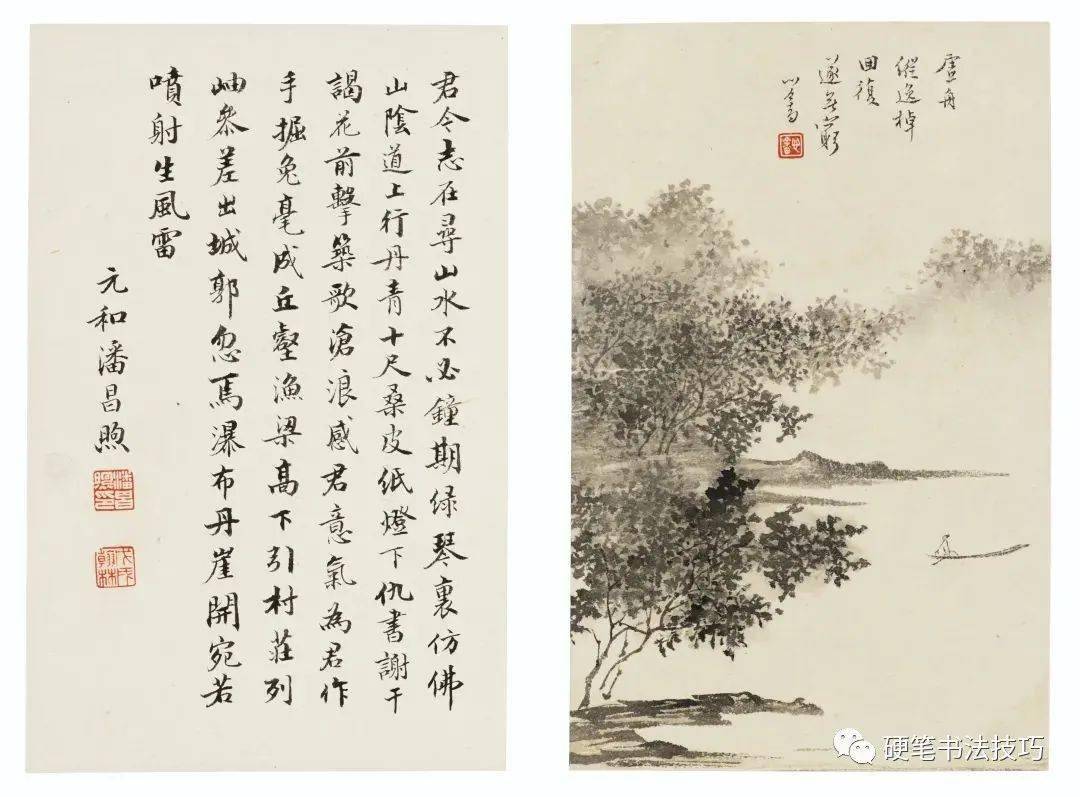 君今志在尋山水不必鐘期绿琴裏仿佛
山陰道上行丹青十尺桑皮纸燈下仇書謝干
謁花前擊築歌滄浪感君意氣為君作
手掘兔毫成丘壑漁梁高下引村莊列
岫參差出城郭忽焉瀑布丹崖開宛若
噴射生風雷
元和潘昌煦
虛舟
縱逸棹
回復
遂無窮
心畬
硬笔书法技巧